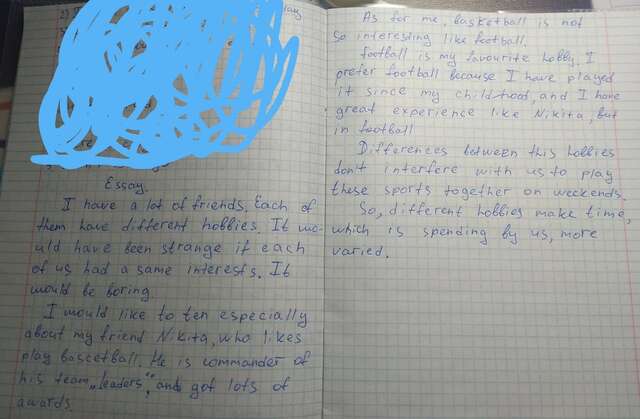 2)
play
Essay.
I have a lot of friends. Each of
them have different hobbies. It wo-
uld have been strange if each
of us had a same interests. It
would be boring
I would like to ten especially
about my friend Nikita, who likes
play bascetball. He is commander of
his team „leaders“, and got lots of
awards.
As for me, basketball is not
so interesting like football.
football is my favourite hobby. I
prefer football because I have played
it since my child-hood, and I have
great experience like Nikita, but
in football
Differences between this hobbies
don't interfere with us to play
these sports together on weekends.
So, different hobbies make time,
which is spending by us, more
varied.